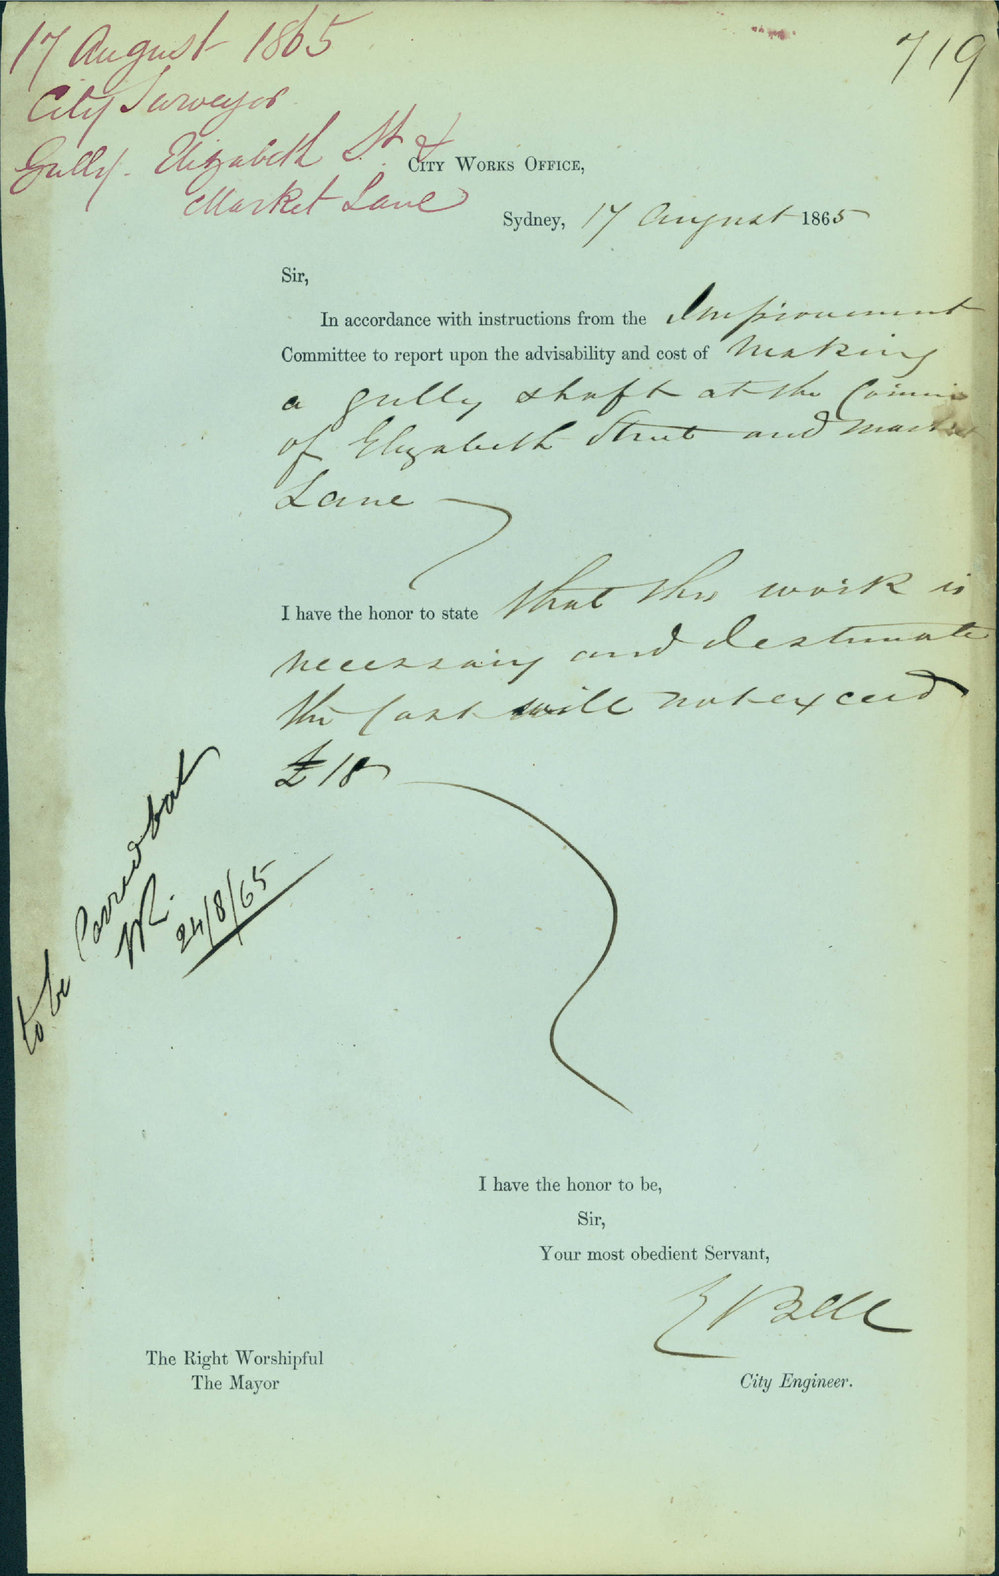 17 August 1865
City Surveyor
Gully. Elizabeth St &
Market Lane
719
City Works Office,
Sydney, 17 August 1865
Sir,
In accordance with instructions from the Improvement
Committee to report upon the advisability and cost of making
a gully shaft at the Corner
of Elizabeth Street and Market
Lane
I have the honor to state that this work is
necessary and I estimate
the Cost will not exceed
£18
to be Carried out
24/8/65
I have the honor to be,
Sir,
Your most obedient Servant,
E Bell
City Engineer.
The Right Worshipful
The Mayor